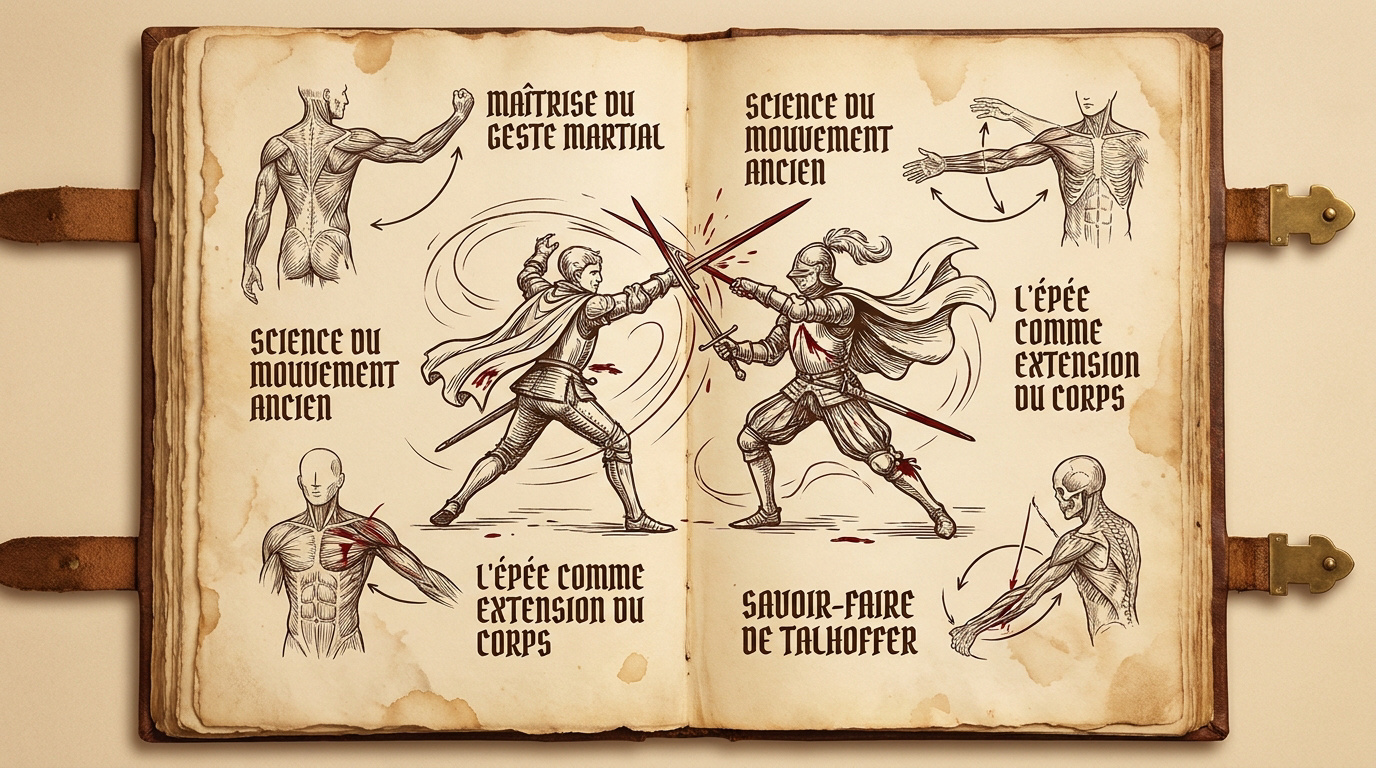 MAÎTRISE DU
GESTE MARTIAL
SCIENCE DU
MOUVEMENT
ANCIEN
L'ÉPÉE COMME
EXTENSION DU
CORPS
SCIENCE DU
MOUVEMENT
ANCIEN
L'ÉPÉE
COMME
EXTENSION
DU CORPS
SAVOIR-FAIRE
DE TALHOFFER